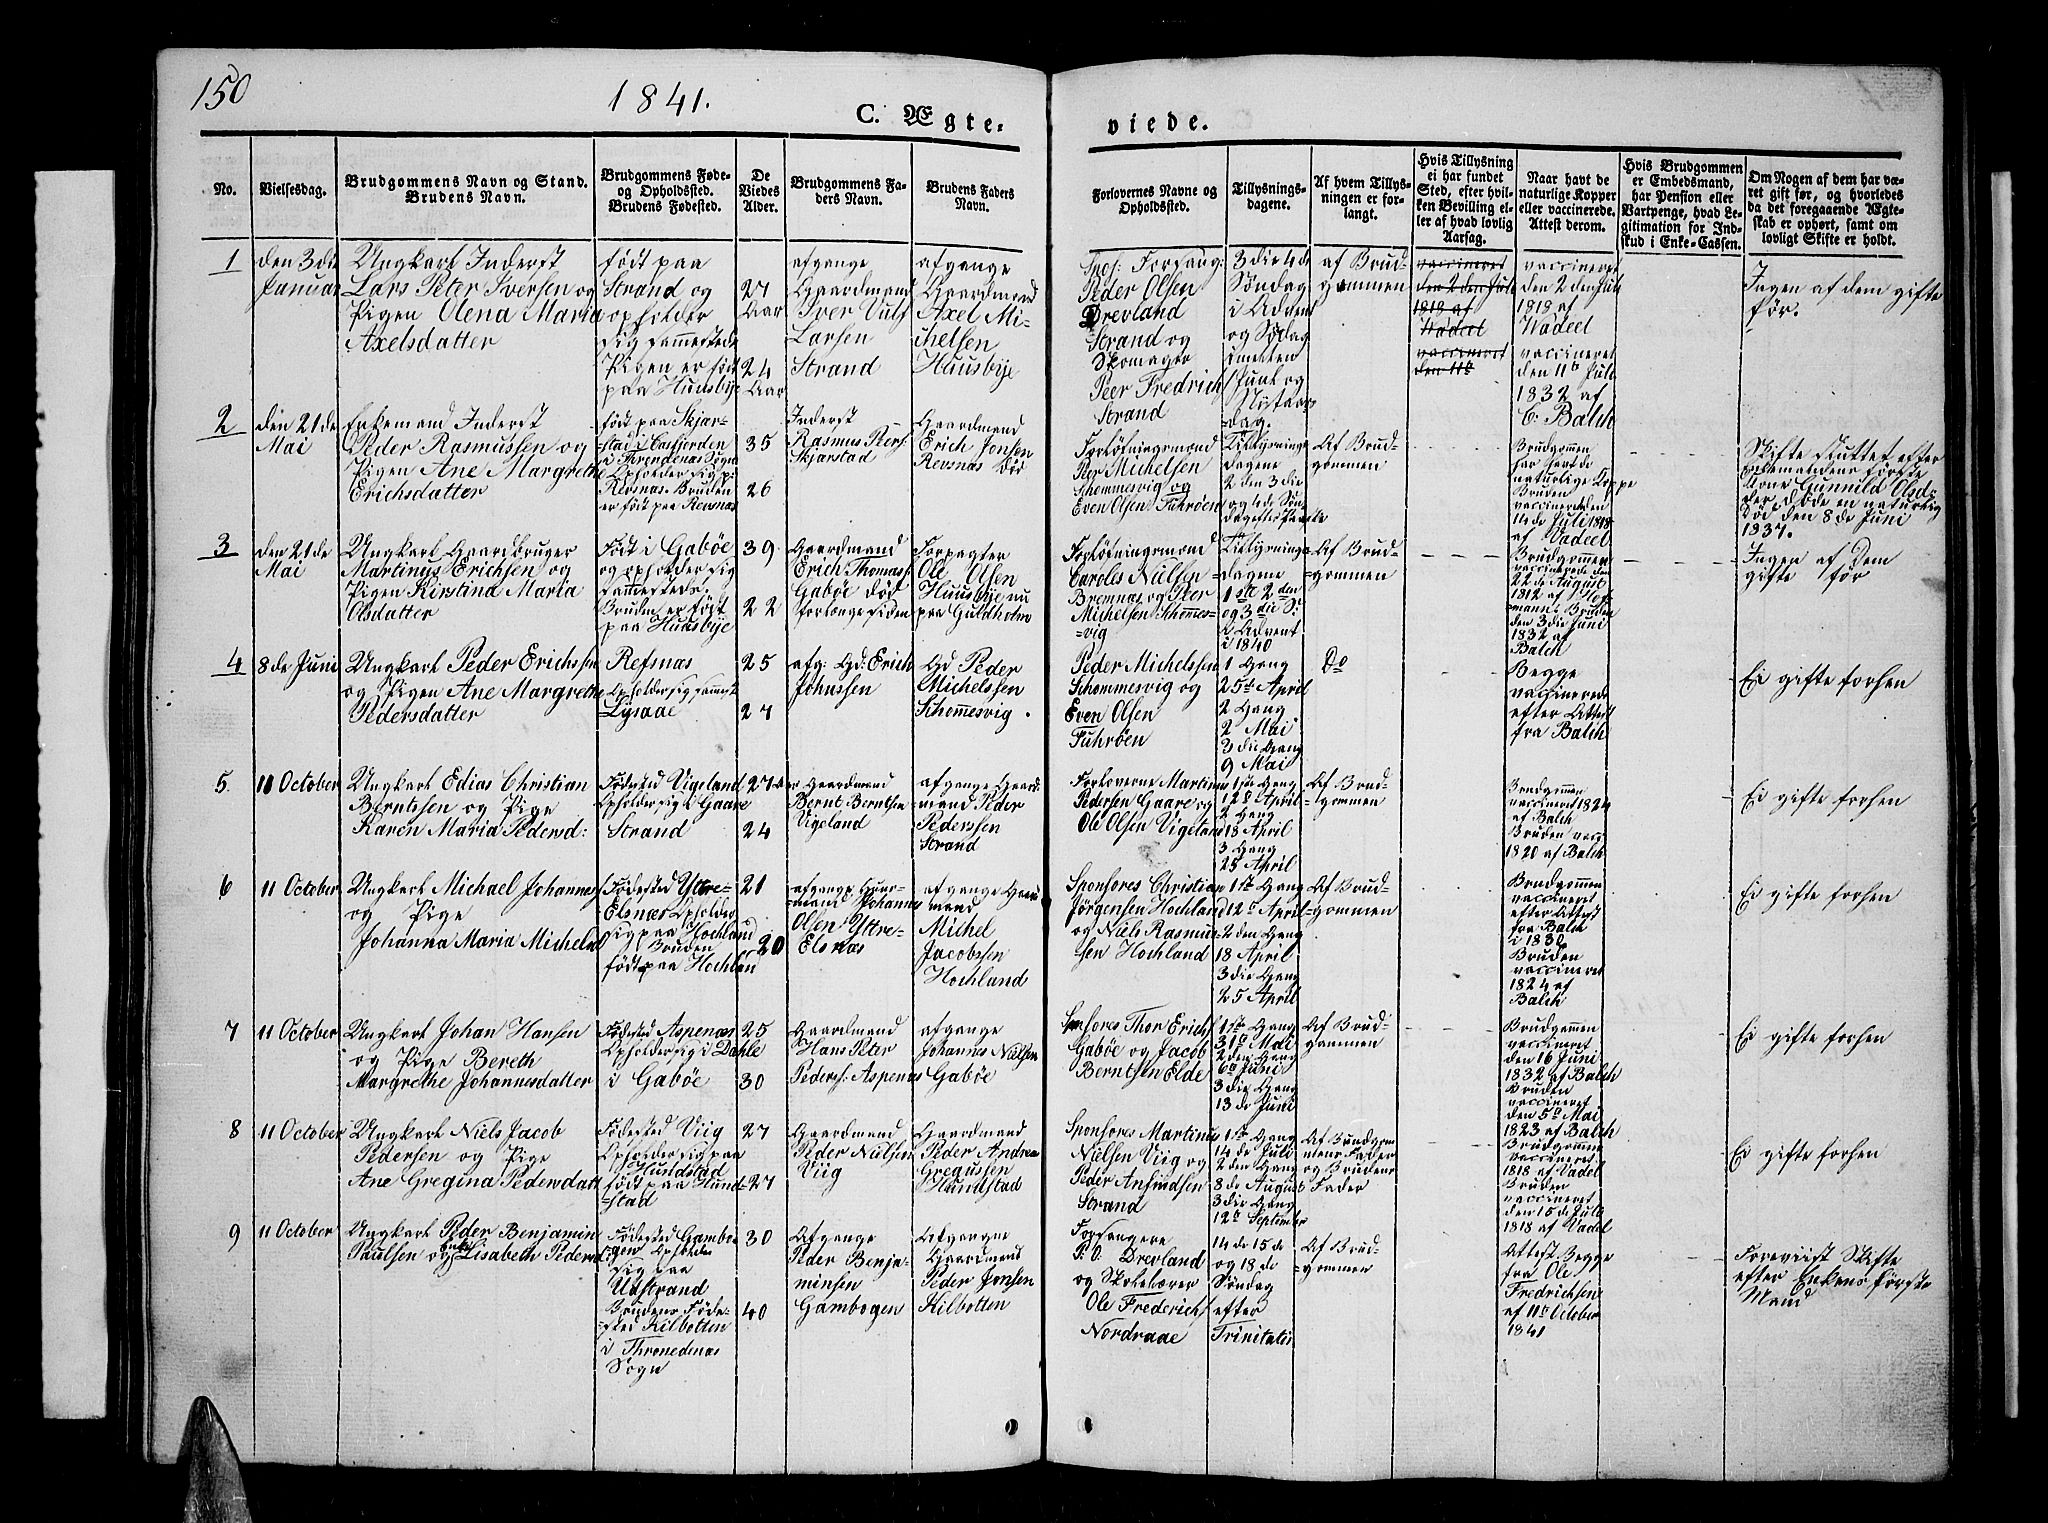 150
1841.
C. Ægte-
viede.
No.
Vielsesdag.
Brudgommens Navn og Stand.
Brudens Navn.
Brudgommens Føde-
og Opholdssted.
Brudens Fødested.
De
Viedes
Alder.
Brudgommens Fa-
ders Navn.
Brudens Faders
Navn.
Forlovernes Navne og
Opholdssted.
Tillysnings-
dagene.
Af hvem Tillys-
ningen er for-
langt.
Hvis Tillysning
ei har fundet
Sted, efter hvil-
ken Bevilling el-
ler af hvad lovlig
Aarsag.
Naar havt de
naturlige Kopper
eller vaccinerede.
Attest derom.
Hvis Brudgommen
er Embedsmand,
har Pension eller
Vartpenge, hvad Le-
gitimation for Ind-
skud i Enke-Cassen.
Om Nogen af dem har væ-
ret gift før, og hvorledes
da det foregaaende Ægte-
skab er ophørt, samt om
lovligt Skifte er holdt.
1
den 3die
Januar
Ungkarl Inderst
Lars Peter Iversen og
Pigen Olena Maria
Axelsdatter
født paa
Strand og
opholder
sig sammestede
Pigen er født
paa Huusbye
27
Aar
24
Aar
afgange
Gaardmand
Iver Vulf
Larsen
Strand
afgange
Gaardmand
Axel Mi-
chelsen
Huusbye
Spos: Forsang:
Peder Olsen
Drevland
Strand og
Skomager
Peer Fredrich
Strand
3 die 4de
Søndag
i Advent
og Sødag
imellem
Juul og
Nytaars
dag.
af Brud-
gommen
vaccineret
den 2den Juli
1818 af
Wadeel
vaccineret
den 11te
vaccineret
den 2den Juli
1818 af
Wadeel
vaccineret
den 11te Juli
1832 af
C: Balch
Ingen af dem gifte
før.
2
den 21de
Mai
Enkemand Inderst
Peder Rasmussen og
Pigen Ane Margrethe
Erichsdatter
født paa Skjær-
stad i Casfjorden
i Throndenæs Sogn
Opholder sig p:
Refsnæs. Bruden
er født paa Refsnæs
35
26
Inderst
Rasmus Peers
Skjærstad
Gaardmand
Erich Jonsen
Refsnæs død
Forløfningsmænd
Peer Michelsen
Schommesvig og
Even Olsen Fuhrøen
Tillysnings-
dagene
2 den 3 die
og 4de Søn-
dag efter Paaske
Af Brud-
gommen
Brudgommen
har havt de
naturlige Koppe
Bruden
vaccinerede den
14de Juli 1818
af Vadeel
Skifte sluttet efter
Enkemandens første
Kone Gunnild Olsd-
der døde en naturlig
Død den 8de Juni
1837.
3
den 21de
Mai
Ungkarl Gaardbruger
Martinus Erichsen og
Pigen Kirstina Maria
Olsdatter
Født i Gabøe
og opholder sig
sammestede.
Bruden er født
paa Huusbye
39
22
Gaardmand
Erich Thomass:
Gabøe død
for længe siden
Forpagter
Ole Olsen
Huusbye nu
paa Guldholm
Forløfningsmænd
Caroles Nielsen
Bremnæs og Peer
Michelsen Schommes-
vig
Tillysnings-
dagene
1ste 2 den
og 3die S:
i Advent
i 1840
Af Brud-
gommen
Brudgommen
vaccinerede den
22 de August
1812 af Hof-
mann. Bruden
den 3die Juni
1832 af
Balch
Ingen af Dem
gifte før
4
8de Juni
Ungkarl Peder Erichsen
og Pigen Ane Margrethe
Pedersdatter
Refsnæs
Opholder sig sammest
Lysaae
25
27
afg: Gd: Erich
Johnssen
Gd Peder
Michelssen
Schommesvig.
Peder Michelssen
Schommesvig og
Even Olsen
Fuhrøen
1 Gang
25de April
2 Gang
2 Mai
3 die Gang
9 Mai
Do
Begge
vaccinerede
efter Attest
fra Balch
Ei gifte forhen
5
11 October
Ungkarl Edias Christian
Berntsen og Pige
Karen Maria Pedersd:
Fødested Vigeland
Opholder sig i Gaare
Strand
27
24
Gaardmand
Bernt Berntsen
Vigeland
afgange Gaard-
mand Peder
Pederssen
Strand
Forloverne Martinus
Pedersen Gaare og
Ole Olsen Vigeland
1ste Gang
12te April
2 Gang
18 April
3 Gang
25 April
Af Brud-
gommen
Brudgommen
vaccineret 1824
af Balch
Bruden vacc
1820 af Balch
Ei gifte forhen
6
11 October
Ungkarl Michael Johannes
og Pige
Johanna Maria Michelsd
Fødested Yttre-
Elsnæs Opholder
sig paa Hochland
Bruden
født paa Hochland
21
20
afgange Gaar-
mand Johannes
Olsen Yttre-
Elsnæs
afgange Gaard
mand
Michel
Jacobssen
Hochland
Sponsores Christian
Jørgensen Hochland
og Niels Rasmus-
sen Hochland
1ste Gang
12te April
2 den Gang
18 April
3 die Gang
25 April
Af Brud-
gommen
Brudgommen
vaccineret
efter Attest
fra Balch
i 1830
Bruden
vaccineret
1824 af
Balch
Ei gifte forhen
7
11 October
Ungkarl Johan Hansen
og Pige Bereth
Margrethe Johannesdatter
Fødested Aspenæs
Opholder sig i Dahle
i Gabøe
25
30
Gaardmand
Hans Peter
Peders: Aspenæs
afgange
Johannes Nielsen
Gabøe
Sponsores Thor Erichs
Gabøe og Jacob
Berntsen Elde
1ste Gang
31te Mai
2 den Gang
6te Juni
3 die Gang
13 de Juni
Af Brud-
gammen
Brudgommen
vaccineret
den 16 Juni
1832 af Balch
Bruden
vaccineret
den 5te Mai
1823 af Balch
Ei gifte forhen
8
11 October
Ungkarl Niels Jacob
Pedersen og Pige
Ane Gregina Pedersdatt
Fødested Viig
Opholder sig paa
Hundstad
født paa Hund-
stad
27
27
Gaardmand
Peder Nielsen
Viig
Gaardmand
Peder Andrea
Gregusen
Hundstad
Sponsores Martinus
Nielsen Viig og
Peder Amundsen
Strand
1ste Gang
14 de Juli
2 den Gang
8 de August
3 die Gang
12te September
Af Brudgom-
mens Fader
og Brudens
Fader
Brudgommen
vaccineret
1818 af Vadeel
Bruden
vaccineret
den 15 de Juli
1818 af Vadel
Ei gifte forhen
9
11 October
Ungkarl Peder Benjamin
Paulsen og Enke Lisabeth Pedersd
Fødested Gamboe
gen Opholder
sig paa
Udstrand
Brudens Føde-
sted Kilbotten
i Thronedenæs
Sogn
30
40
Afgange
Peder Benja-
minsen
Gambogen
Afgangne
Gaardmand
Peder Jonsen
Kilbotten
Forsangere
P. O. Drevland
og Skolelærer
Ole Frederichs
Nordraae
14 de 15 de
og 18 de
Søndag
efter
Trinitatis
Af Brud-
gommen
Attest Begge
fra Ole
Fredrichsen
af 11te October
1841
Foreviist Skifte
efter Enkens første
Mand